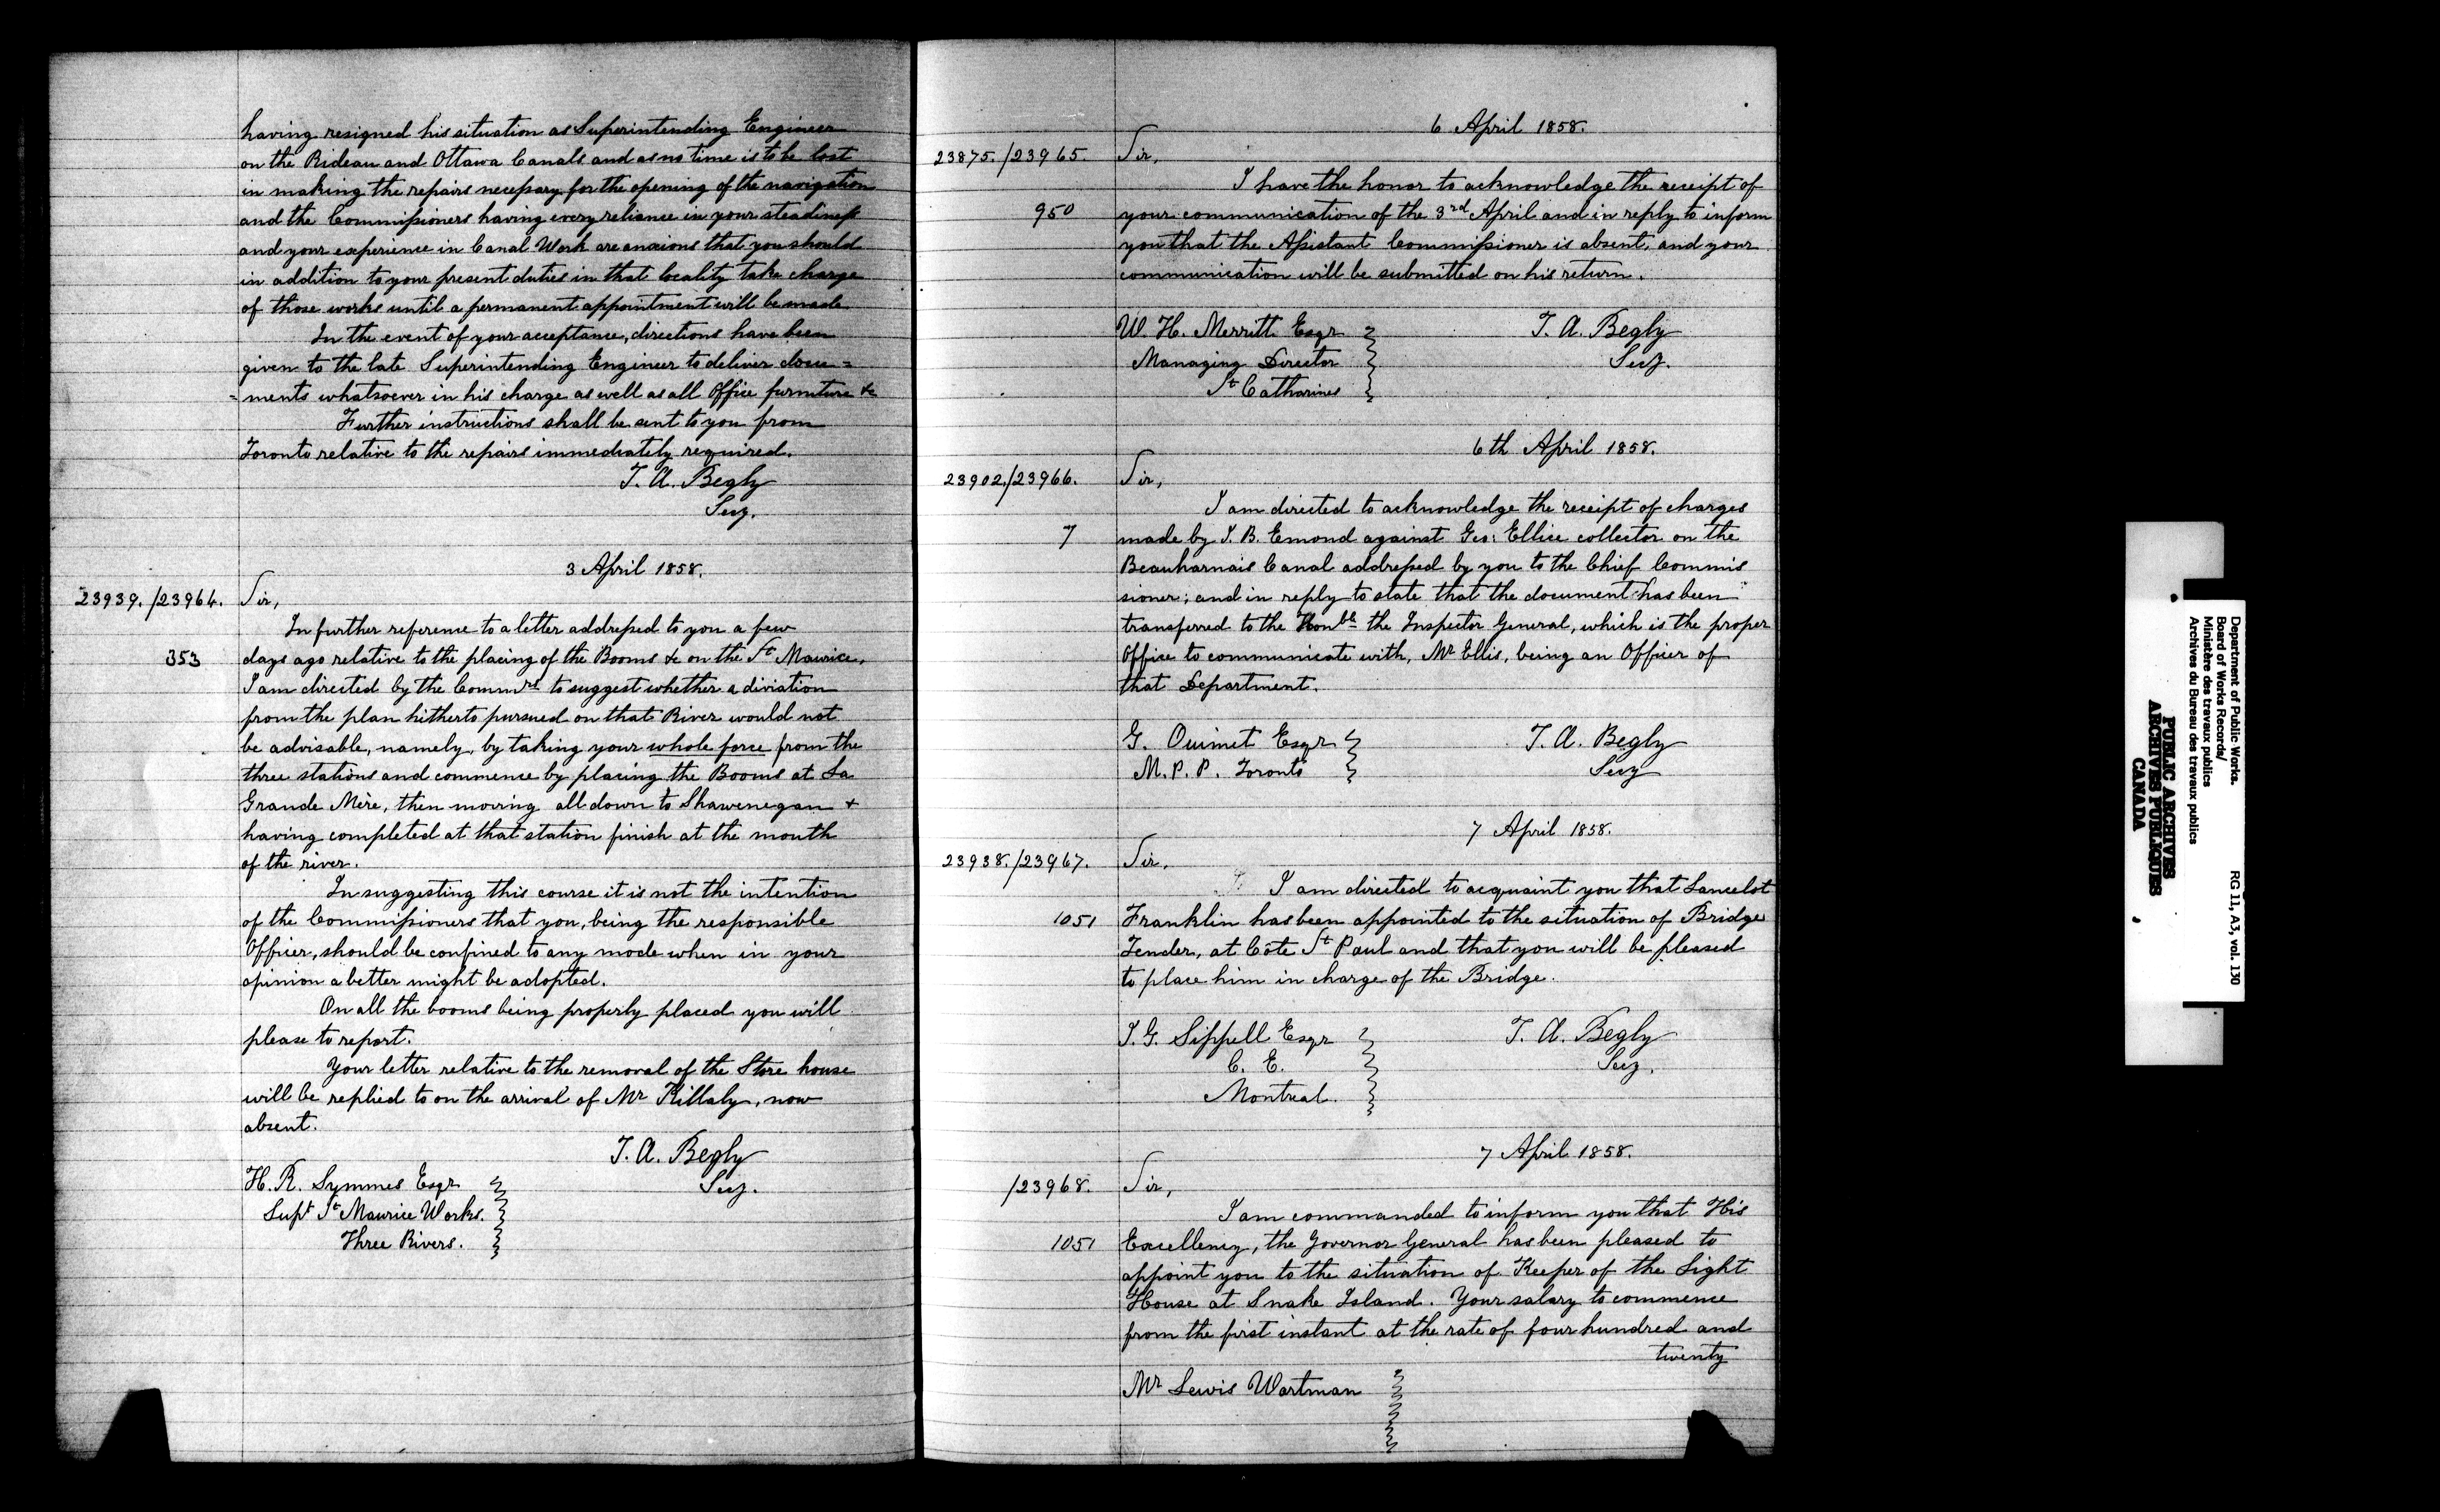 having resigned his situation as Superintending Engineer
on the Rideau and Ottawa Canals and as no time is to be lost
in making the repairs necessary for the opening of the navigation
and the Commissioners having every reliance in your steadiness
and your experience in Canal Work are anxious that you should
in addition to your present duties in that locality take charge
of those works until a permanent appointment will be made
In the event of your acceptance, directions have been
given to the late Superintending Engineer to deliver docu=
=ments whatsoever in his charge as well as all Office furniture &c
Further instructions shall be sent to you from
Toronto relative to the repairs immediately required.
T. A. Begly
Secy.
3 April 1858.
23939./23964. Sir,
In further reference to a letter addressed to you a few
353 days ago relative to the placing of the Booms &c on the St Maurice,
I am directed by the Commrs to suggest whether a diviation
from the plan hitherto pursued on that River would not
be advisable, namely, by taking your whole force from the
three stations and commence by placing the Booms at La
Grande Mère, then moving all down to Shawenegan &
having completed at that station finish at the mouth
of the river.
In suggesting this course it is not the intention
of the Commissioners that you, being the responsible
Officer, should be confined to any mode when in your
opinion a better might be adopted.
On all the booms being properly placed you will
please to report.
Your letter relative to the removal of the Store house
will be replied to on the arrival of Mr Killaly, now
absent.
T. A. Begly
Secy.
H. R. Symmes Esqr
Supt St Maurice Works.
Three Rivers.
6 April 1858.
23875./23965. Sir,
I have the honor to acknowledge the receipt of
950 your communication of the 3rd April and in reply to inform
you that the Assistant Commissioner is absent, and your
communication will be submitted on his return.
W. H. Merritt Esqr
T. A. Begly
Managing Director
Secy.
St Catharines
6th April 1858.
23902./23966. Sir,
I am directed to acknowledge the receipt of charges
7 made by J. B. Emond against Geo: Ellice collector on the
Beauharnais Canal addressed by you to the Chief Commis
sioner; and in reply to state that the document has been
transferred to the Honble the Inspector General, which is the proper
Office to communicate with, Mr Ellis, being an Officer of
that Department.
G. Ouimet Esqr
T. A. Begly
M. P. P. Toronto
Secy
7 April 1858.
23938./23967. Sir,
I am directed to acquaint you that Lancelot
1051 Franklin has been appointed to the situation of Bridge
Tender, at Côte St Paul and that you will be pleased
to place him in charge of the Bridge.
J. G. Sippell Esqr
T. A. Begly
C. E.
Secy.
Montreal.
7 April 1858.
/23968. Sir,
I am commanded to inform you that His
1051 Excellency, the Governor General has been pleased to
appoint you to the situation of Keeper of the Light
House at Snake Island. Your salary to commence
from the first instant at the rate of four hundred and
twenty
Mr Lewis Wartman
Department of Public Works.
Board of Works Records/
Ministère des travaux publics
Archives du Bureau des travaux publics
RG 11, A3, vol. 130
PUBLIC ARCHIVES
ARCHIVES PUBLIQUES
CANADA